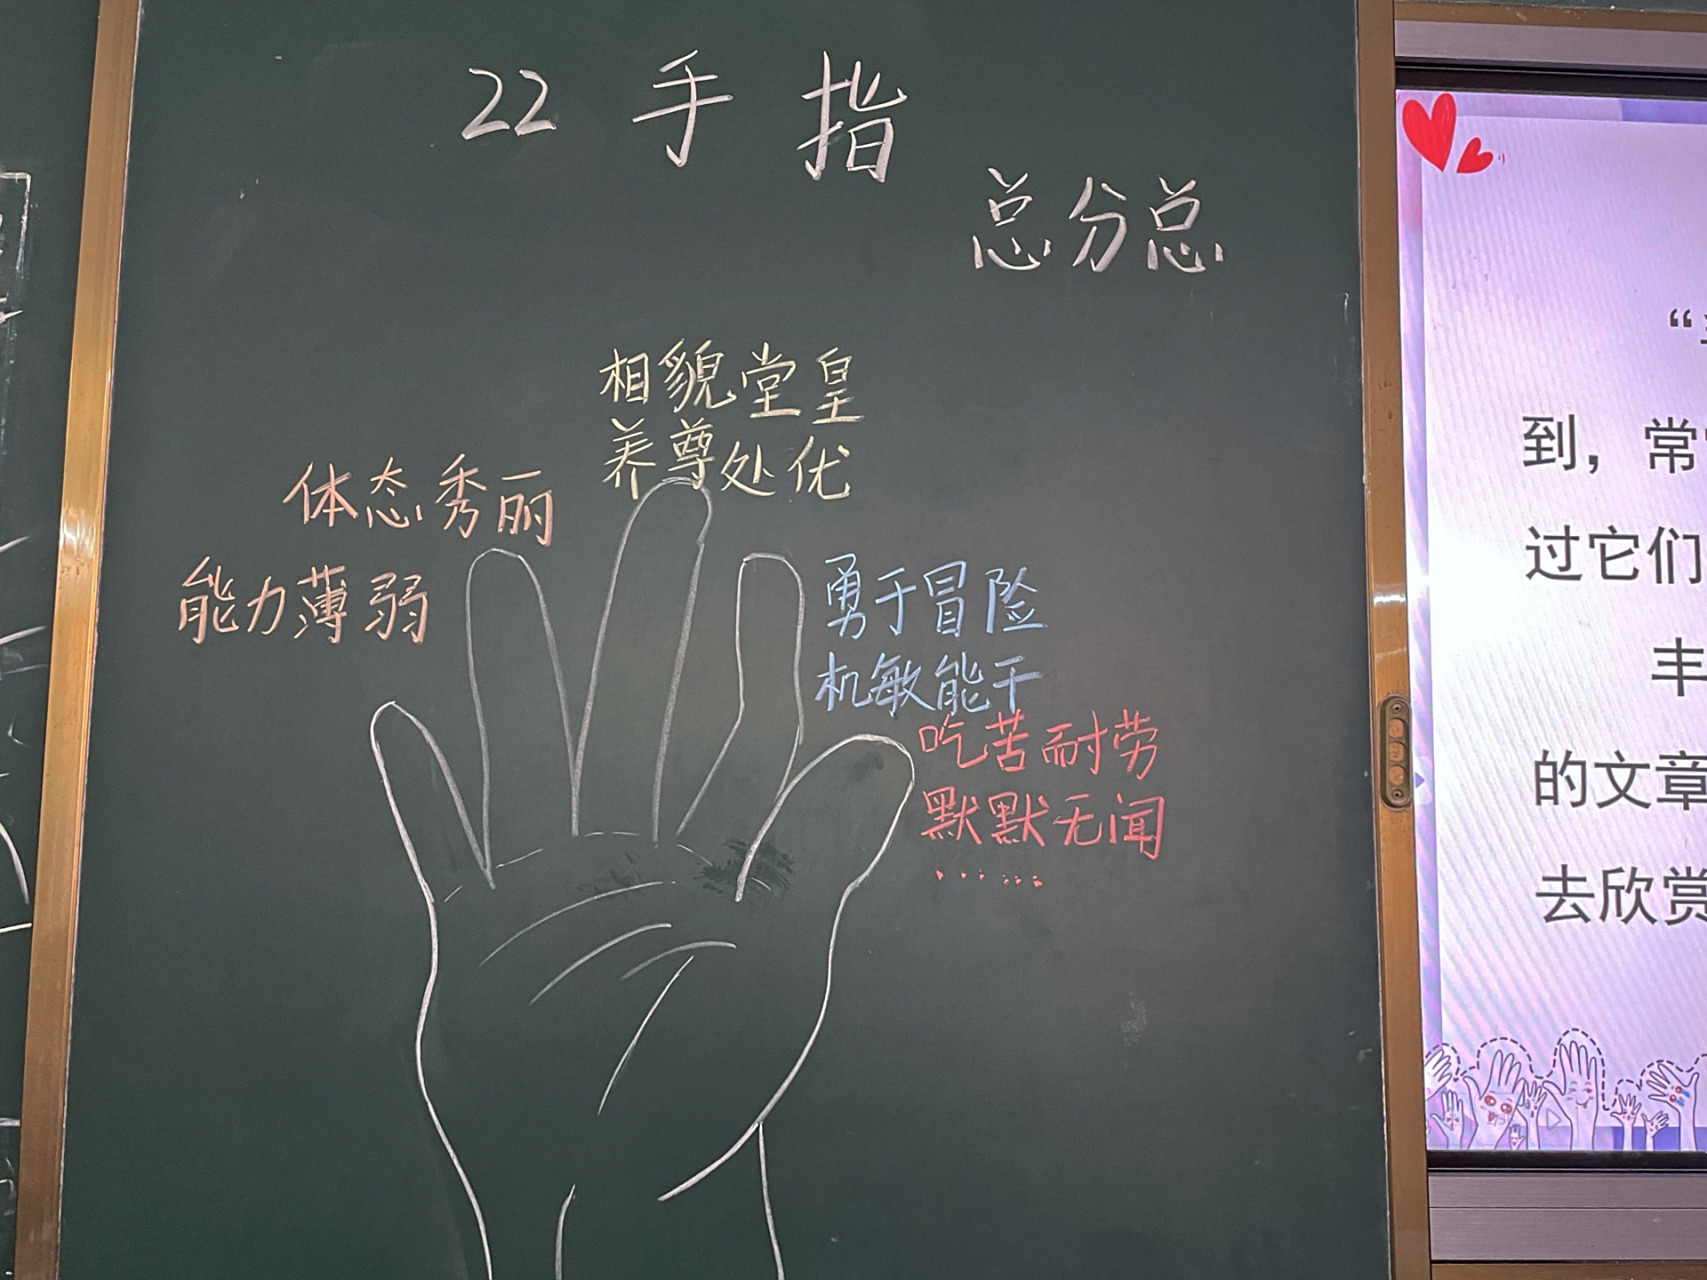 22 手指
总分总
相貌堂皇
养尊处优
体态秀丽
能力薄弱
勇于冒险
机敏能干
吃苦耐劳
默默无闻
……
“
到，常
过它们
丰
的文章
去欣赏